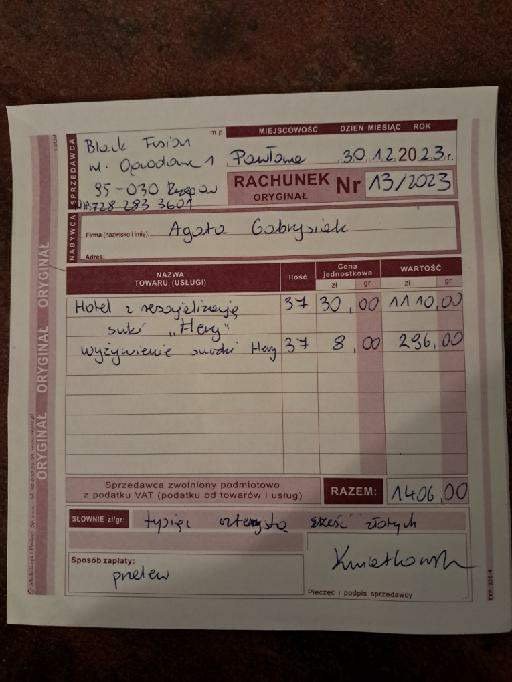 SPRZEDAWCA
Black Fusion
ul. Ogrodowa 1
95-030 Rzgów
728 283 3601
m.p.
MIEJSCOWOŚĆ DZIEŃ MIESIĄC ROK
30.12.2023r.
RACHUNEK Nr 13/2023
ORYGINAŁ
NABYWCA
Firma (nazwisko i imię): Agata Gabrysiak
Adres:
NAZWA TOWARU (USŁUGI) Ilość Cena jednostkowa WARTOŚĆ
zł gr zł gr
Hotel z resocjalizacją 37 30,00 1110,00
suki „Hery"
wyżywienie suczki Hery 37 8,00 296,00
Sprzedawca zwolniony podmiotowo
z podatku VAT (podatku od towarów i usług)
RAZEM: 1406,00
SŁOWNIE zł/gr: tysiąc czterysta sześć złotych
Sposób zapłaty:
przelew
Pieczęć i podpis sprzedawcy
ORYGINAŁ ORYGINAŁ ORYGINAŁ